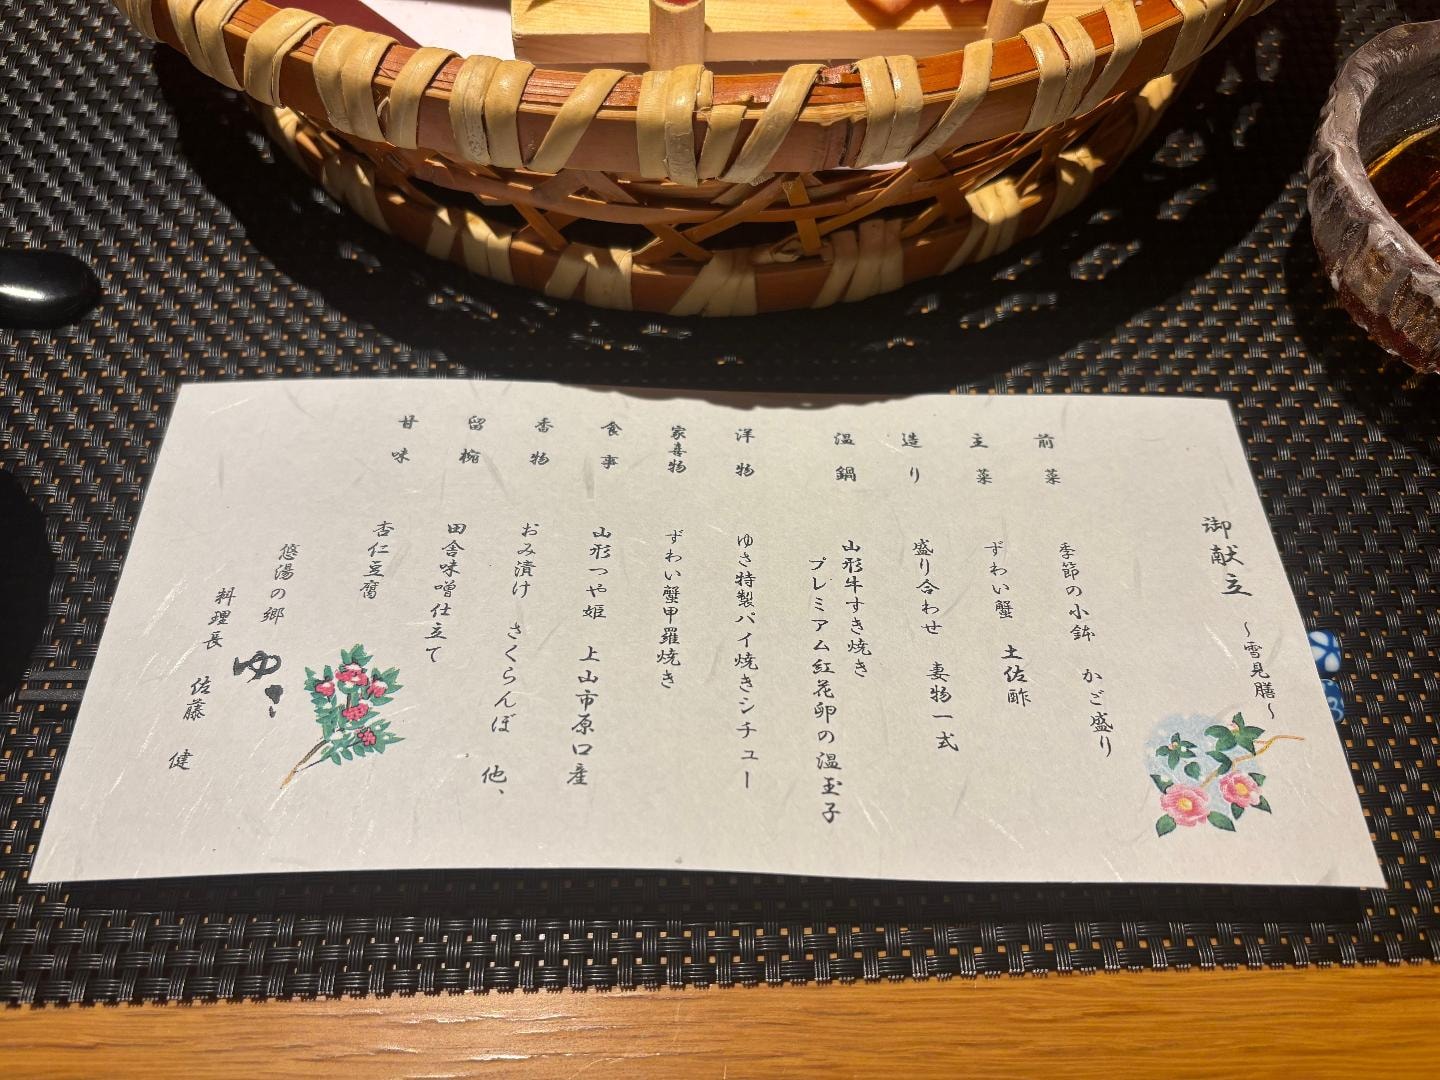 御献立 ～雪見膳～
前菜 季節の小鉢 かご盛り
主菜 ずわい蟹 土佐酢
造り 盛り合わせ 妻物一式
温鍋 山形牛すき焼き
プレミアム紅花卵の温玉子
洋物 ゆさ特製パイ焼きシチュー
家喜物 ずわい蟹甲羅焼き
食事 山形つや姫 上山市原口産
香物 おみ漬け さくらんぼ 他、
留椀 田舎味噌仕立て
甘味 杏仁豆腐
悠湯の郷 ゆさ
料理長 佐藤 健